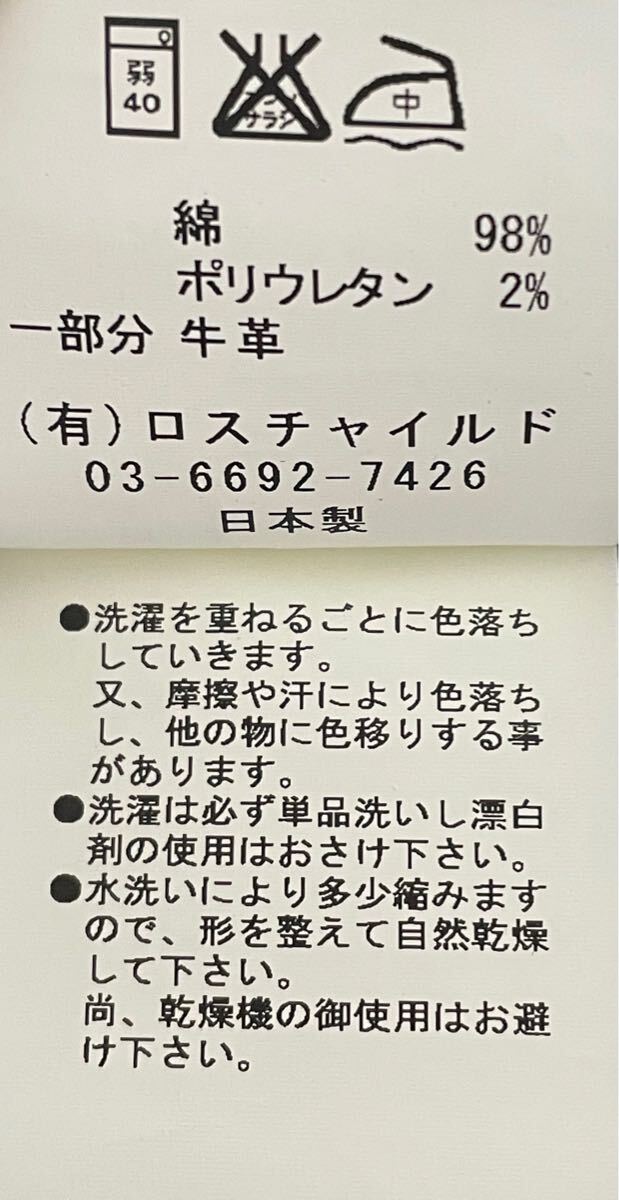 弱
40
エンソ
サラシ
中
綿 98%
ポリウレタン 2%
一部分 牛革
(有)ロスチャイルド
03-6692-7426
日本製
●洗濯を重ねるごとに色落ち
していきます。
又、摩擦や汗により色落ち
し、他の物に色移りする事
があります。
●洗濯は必ず単品洗いし漂白
剤の使用はおさけ下さい。
●水洗いにより多少縮みます
ので、形を整えて自然乾燥
して下さい。
尚、乾燥機の御使用はお避
け下さい。